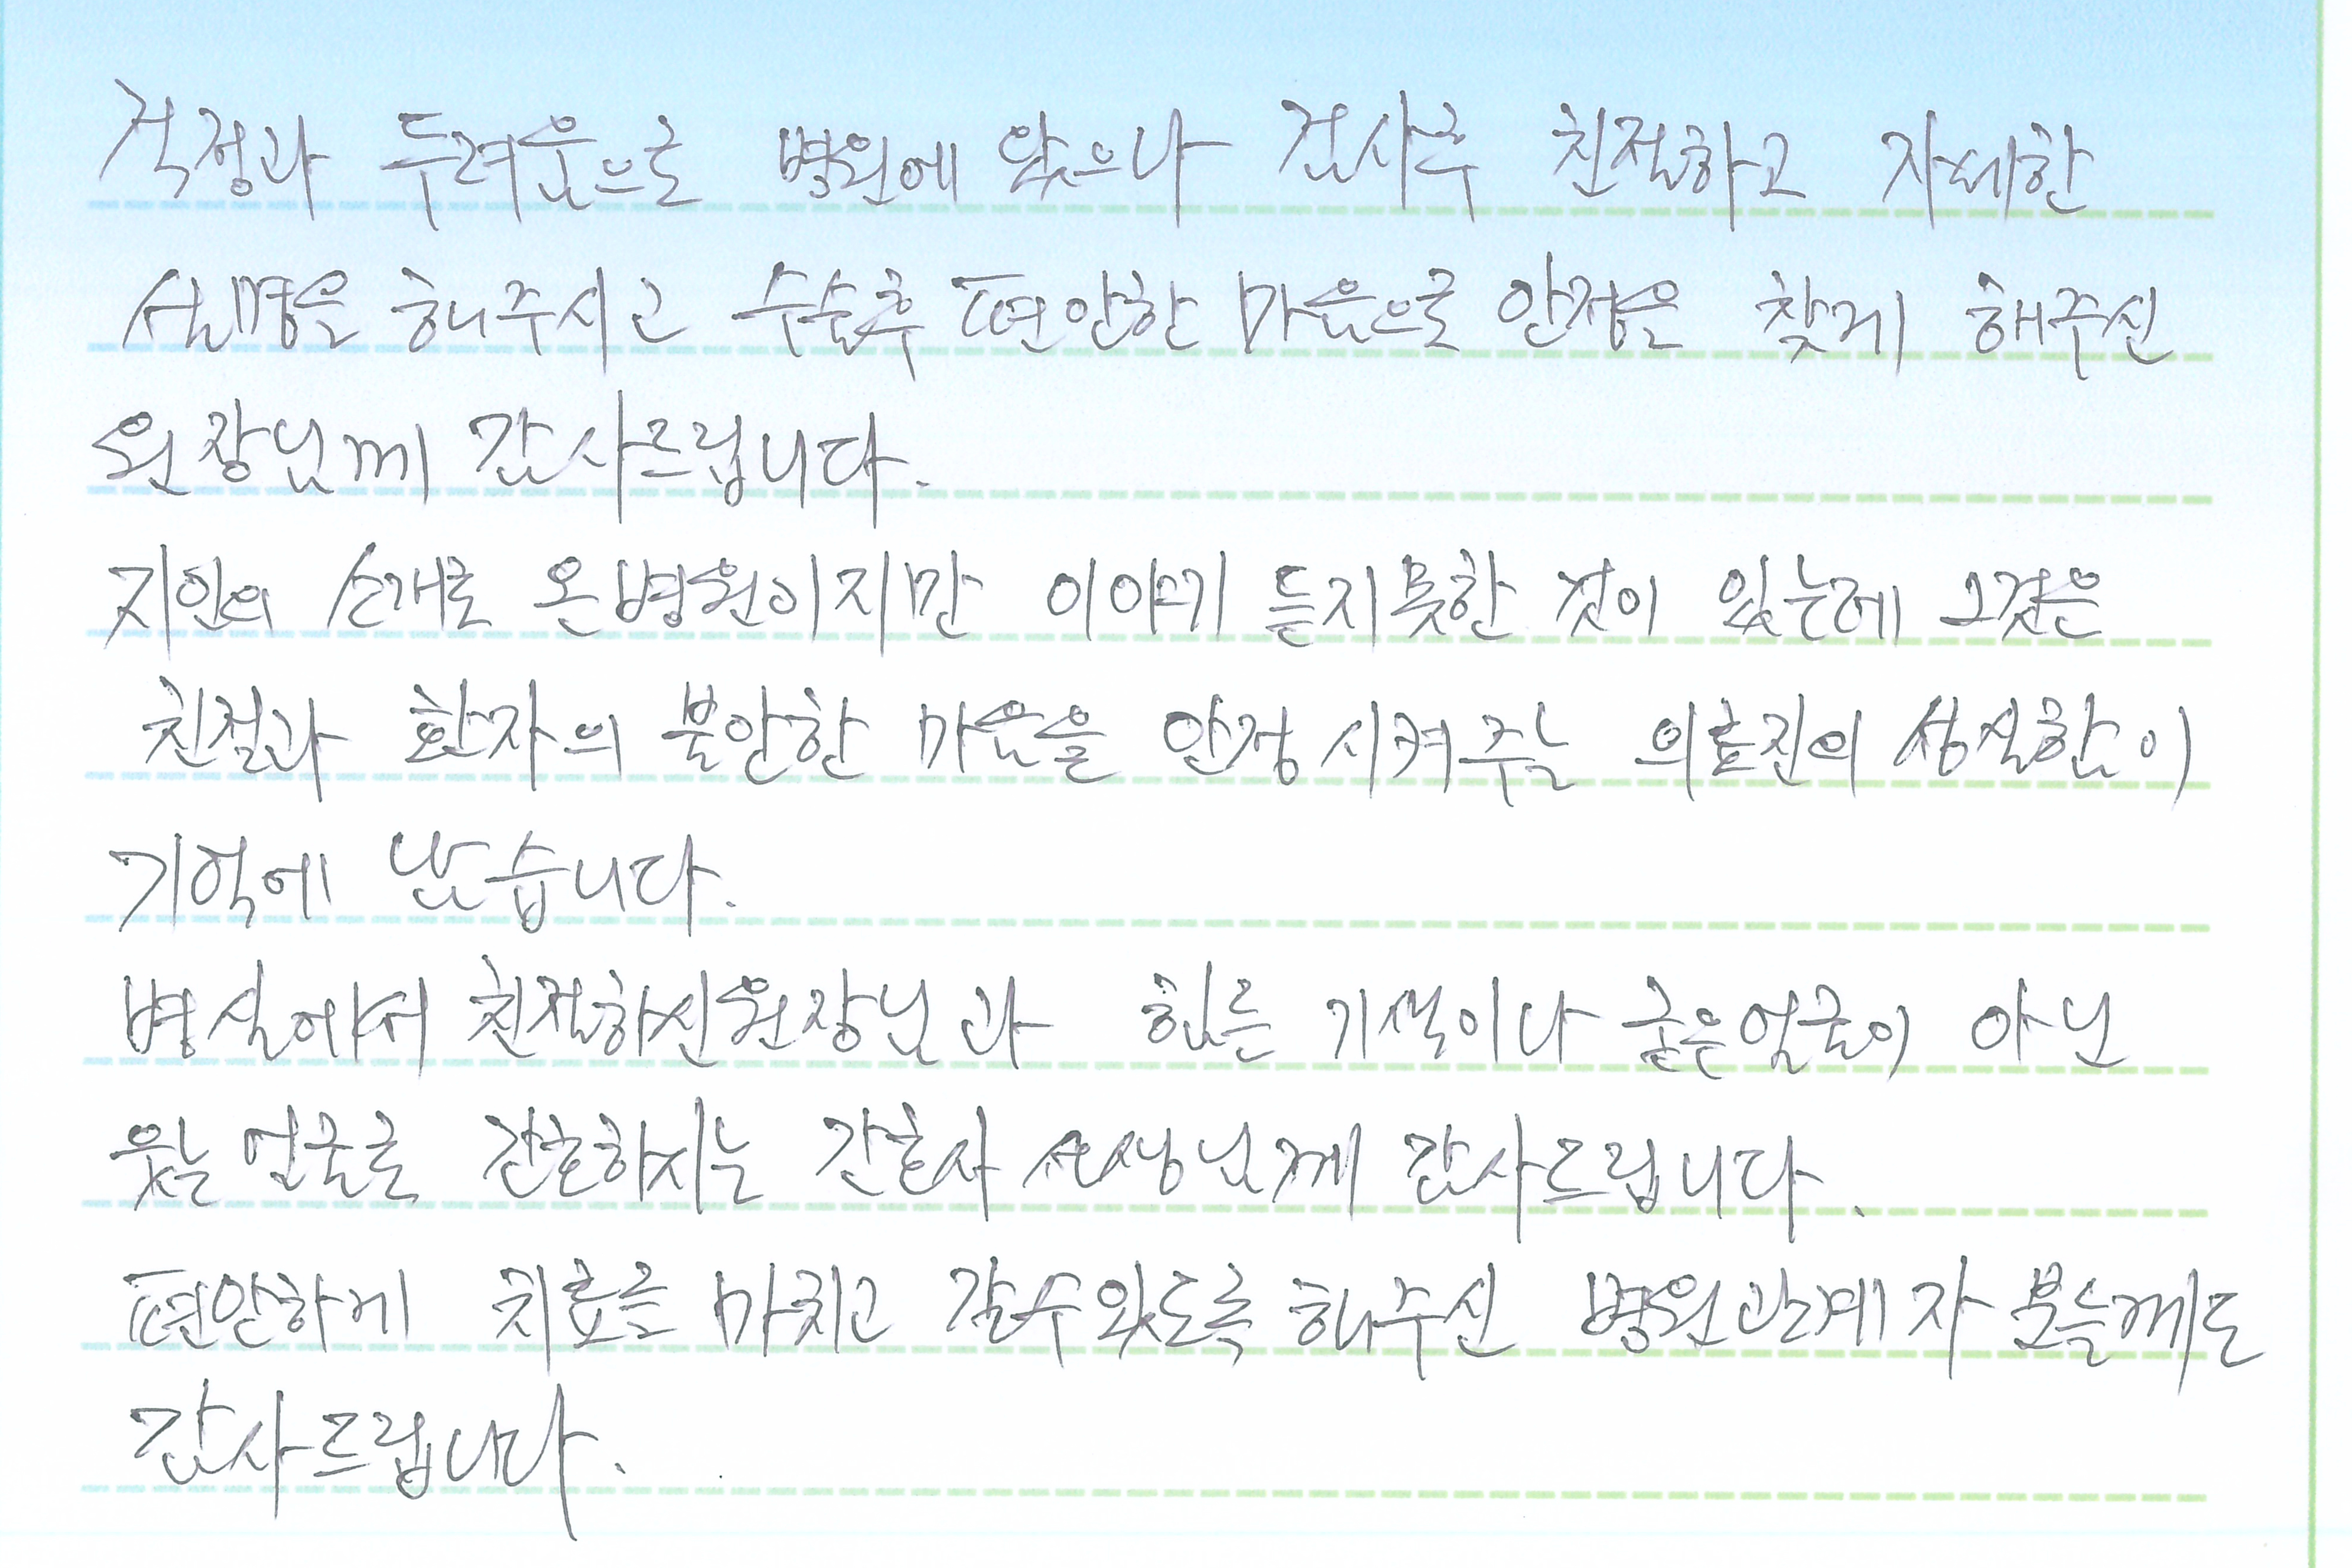 걱정과 두려움으로 병원에 왔으나 검사후 친절하고 자세한
설명을 해주시고 수술후 편안한 마음으로 안정을 찾게 해주신
원장님께 감사드립니다.
지인의 소개로 온 병원이지만 이야기 듣지 못한 것이 있는데 그것은
친절과 환자의 불안한 마음을 안정 시켜주는 의료진의 성실함이
기억에 남습니다.
병실에서 친절하신 원장님과 힘든 기색이나 굳은 얼굴이 아닌
웃는 얼굴로 간호하시는 간호사 선생님께 감사드립니다.
편안하게 치료를 마치고 갈수 있도록 해주신 병원관계자 분들께도
감사드립니다.